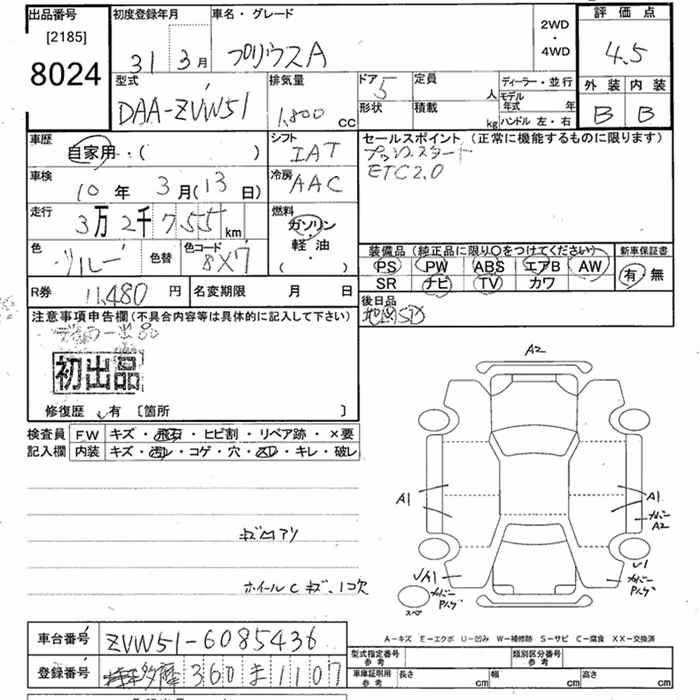 出品番号
[2185]
8024
初度登録年月
31 3月
車名・グレード
プリウスA
2WD
・
4WD
評価点
4.5
外装 内装
B B
型式
DAA-ZVW51
排気量
1,800 CC
ドア 5
形状
定員 人
積載 kg
ディーラー・並行
モデル年式 年
ハンドル 左・右
車歴
自家用・( )
シフト
IAT
セールスポイント (正常に機能するものに限ります)
プッシュスタート
ETC2.0
車検
10年 3月(13日)
冷房
AAC
走行
3万2千755km
燃料
ガソリン
・
軽油
( ・ )
色
ブルー
色替
色コード
8X7
装備品 (純正品に限り○をつけてください)
PS PW ABS エアB AW
SR ナビ TV カワ
新車保証書
有 無
R券 11,480 円
名変期限 月 日
後日品
地図SD
注意事項申告欄 (不具合内容等は具体的に記入して下さい)
ディーラー出品
初出品
修復歴 有 [箇所 ]
検査員記入欄
FW キズ・飛石・ヒビ割・リペア跡・×要
内装 キズ・汚レ・コゲ・穴・スレ・キレ・破レ
キズ凹アリ
ホイールCキズ、1コ欠
A2
A1
A1
A2
U1
スペア
車台番号 ZVW51-6085436
登録番号 多摩 360 ま 1107
A-キズ E-エクボ U-凹み W-補修跡 S-サビ C-腐食 XX-交換済
型式指定番号 参考
類別区分番号 参考
車庫証明用 参考 長さ cm 幅 cm 高さ cm